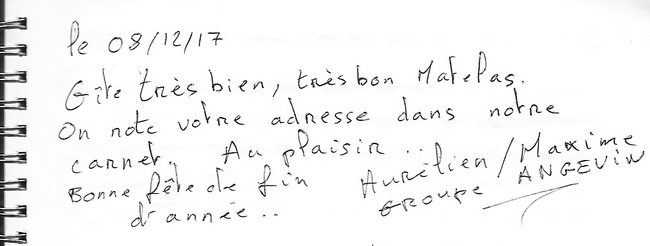 le 08/12/17
Gîte très bien, très bon Matelas.
On note votre adresse dans notre
carnet. Au plaisir ..
Bonne fête de fin
d'année..
Aurélien / Maxime
Groupe ANGEVIN